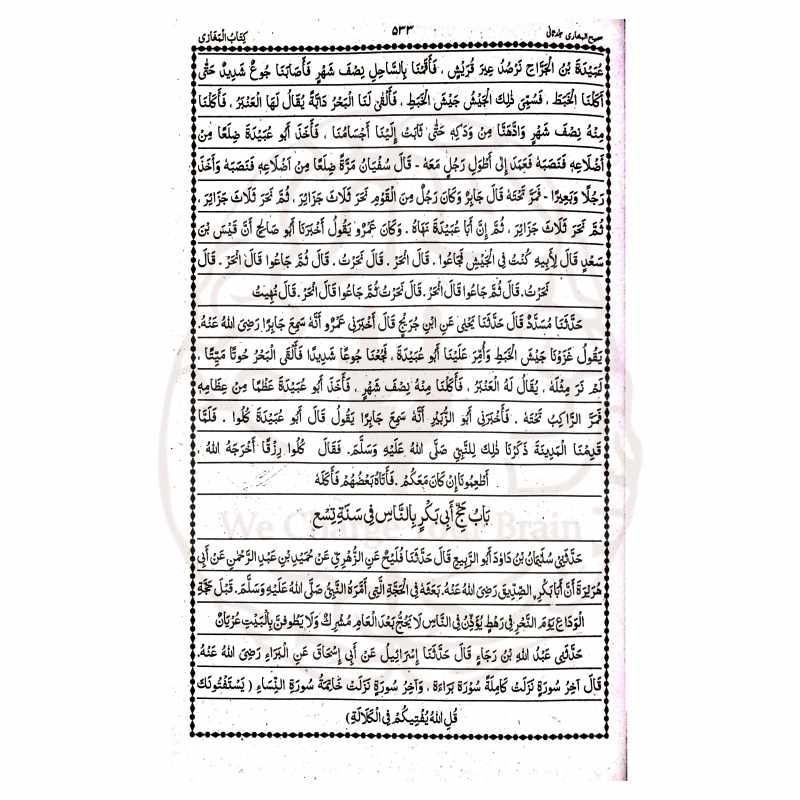 صحيح البخاري جلد ثاني ٥٣٣ كِتَابُ الْمَغَازِي
عُبَيْدَةَ بْنُ الْجَرَّاحِ نَرْصُدُ عِيرَ قُرَيْشٍ ، فَأَقَمْنَا بِالسَّاحِلِ نِصْفَ شَهْرٍ فَأَصَابَنَا جُوعٌ شَدِيدٌ حَتَّى
أَكَلْنَا الْخَبَطَ ، فَسُمِّيَ ذٰلِكَ الْجَيْشُ جَيْشَ الْخَبَطِ ، فَأَلْقَىٰ لَنَا الْبَحْرُ دَابَّةً يُقَالُ لَهَا الْعَنْبَرُ . فَأَكَلْنَا
مِنْهُ نِصْفَ شَهْرٍ وَادَّهَنَّا مِنْ وَدَكِهِ حَتَّى ثَابَتْ إِلَيْنَا أَجْسَامُنَا ، فَأَخَذَ أَبُو عُبَيْدَةَ ضِلَعًا مِنْ
أَضْلَاعِهِ فَنَصَبَهُ فَعَمَدَ إِلَى أَطْوَلِ رَجُلٍ مَعَهُ - قَالَ سُفْيَانُ مَرَّةً ضِلَعًا مِنْ اَضْلَاعِهِ فَنَصَبَهُ وَأَخَذَ
رَجُلًا وَبَعِيرًا - فَمَرَّ تَحْتَهُ قَالَ جَابِرٌ وَكَانَ رَجُلٌ مِنَ الْقَوْمِ نَحَرَ ثَلَاثَ جَزَائِرَ ، ثُمَّ نَحَرَ ثَلَاثَ جَزَائِرَ ،
ثُمَّ نَحَرَ ثَلَاثَ جَزَائِرَ ، ثُمَّ إِنَّ أَبَا عُبَيْدَةَ نَهَاهُ . وَكَانَ عَمْرٌو يَقُولُ أَخْبَرَنَا أَبُو صَالِحٍ أَنَّ قَيْسَ بْنَ
سَعْدٍ قَالَ لِأَبِيهِ كُنْتُ فِي الْجَيْشِ فَجَاعُوا . قَالَ انْحَرْ . قَالَ نَحَرْتُ . قَالَ ثُمَّ جَاعُوا قَالَ انْحَرْ . قَالَ
نَحَرْتُ . قَالَ ثُمَّ جَاعُوا قَالَ انْحَرْ . قَالَ نَحَرْتُ ثُمَّ جَاعُوا قَالَ انْحَرْ . قَالَ نُهِيتُ
حَدَّثَنَا مُسَدَّدٌ قَالَ حَدَّثَنَا يَحْيَى عَنِ ابْنِ جُرَيْجٍ قَالَ أَخْبَرَنِي عَمْرٌو أَنَّهُ سَمِعَ جَابِرًا رَضِيَ اللهُ عَنْهُ.
يَقُولُ غَزَوْنَا جَيْشَ الْخَبَطِ وَأُمِّرَ عَلَيْنَا أَبُو عُبَيْدَةَ ، فَجُعْنَا جُوعًا شَدِيدًا فَأَلْقَى الْبَحْرُ حُوتًا مَيِّتًا ،
لَمْ نَرَ مِثْلَهُ ، يُقَالُ لَهُ الْعَنْبَرُ ، فَأَكَلْنَا مِنْهُ نِصْفَ شَهْرٍ ، فَأَخَذَ أَبُو عُبَيْدَةَ عَظْمًا مِنْ عِظَامِهِ
فَمَرَّ الرَّاكِبُ تَحْتَهُ . فَأَخْبَرَنِي أَبُو الزُّبَيْرِ أَنَّهُ سَمِعَ جَابِرًا يَقُولُ قَالَ أَبُو عُبَيْدَةَ كُلُوا . فَلَمَّا
قَدِمْنَا الْمَدِينَةَ ذَكَرْنَا ذٰلِكَ لِلنَّبِيِّ صَلَّى اللهُ عَلَيْهِ وَسَلَّمَ. فَقَالَ كُلُوا رِزْقًا أَخْرَجَهُ اللهُ ،
أَطْعِمُونَا إِنْ كَانَ مَعَكُمْ . فَأَتَاهُ بَعْضُهُمْ فَأَكَلَهُ
بَابُ حَجِّ أَبِي بَكْرٍ بِالنَّاسِ فِي سَنَةِ تِسْعٍ
حَدَّثَنِي سُلَيْمَانُ بْنُ دَاوُدَ أَبُو الرَّبِيعِ قَالَ حَدَّثَنَا فُلَيْحٌ عَنِ الزُّهْرِيِّ عَنْ حُمَيْدِ بْنِ عَبْدِ الرَّحْمٰنِ عَنْ أَبِي
هُرَيْرَةَ أَنَّ أَبَا بَكْرٍ الصِّدِّيقَ رَضِيَ اللهُ عَنْهُ. بَعَثَهُ فِي الْحَجَّةِ الَّتِي أَمَّرَهُ النَّبِيُّ صَلَّى اللهُ عَلَيْهِ وَسَلَّمَ. قَبْلَ حَجَّةِ
الْوَدَاعِ يَوْمَ النَّحْرِ فِي رَهْطٍ يُؤَذِّنُ فِي النَّاسِ لَا يَحُجُّ بَعْدَ الْعَامِ مُشْرِكٌ وَلَا يَطُوفَنَّ بِالْبَيْتِ عُرْيَانٌ
حَدَّثَنِي عَبْدُ اللهِ بْنُ رَجَاءٍ قَالَ حَدَّثَنَا إِسْرَائِيلُ عَنْ أَبِي إِسْحَاقَ عَنِ الْبَرَاءِ رَضِيَ اللهُ عَنْهُ.
قَالَ آخِرُ سُورَةٍ نَزَلَتْ كَامِلَةً سُوْرَةُ بَرَاءَةَ ، وَآخِرُ سُورَةٍ نَزَلَتْ خَاتِمَةُ سُورَةِ النِّسَاءِ ( يَسْتَفْتُونَكَ
قُلِ اللهُ يُفْتِيكُمْ فِي الْكَلَالَةِ)
We Change Your Brain